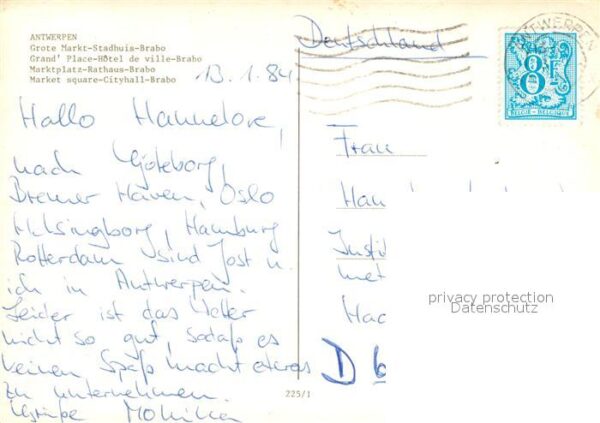 ANTWERPEN
Grote Markt-Stadhuis-Brabo
Grand' Place-Hôtel de ville-Brabo
Marktplatz-Rathaus-Brabo
Market square-Cityhall-Brabo
13.1.84
Hallo Hannelore,
nach Göteborg,
Bremer Haven, Oslo
Helsingborg, Hamburg
Rotterdam sind Jost u.
ich in Antwerpen.
Leider ist das Wetter
nicht so gut, sodaß es
keinen Spaß macht etwas
zu unternehmen.
Grüße Monika
225/1
Deutschland
ANTWERPEN
8F
BELGIE-BELGIQUE
Frau
Han
Insti
met
Hac
D 6
privacy protection
Datenschutz